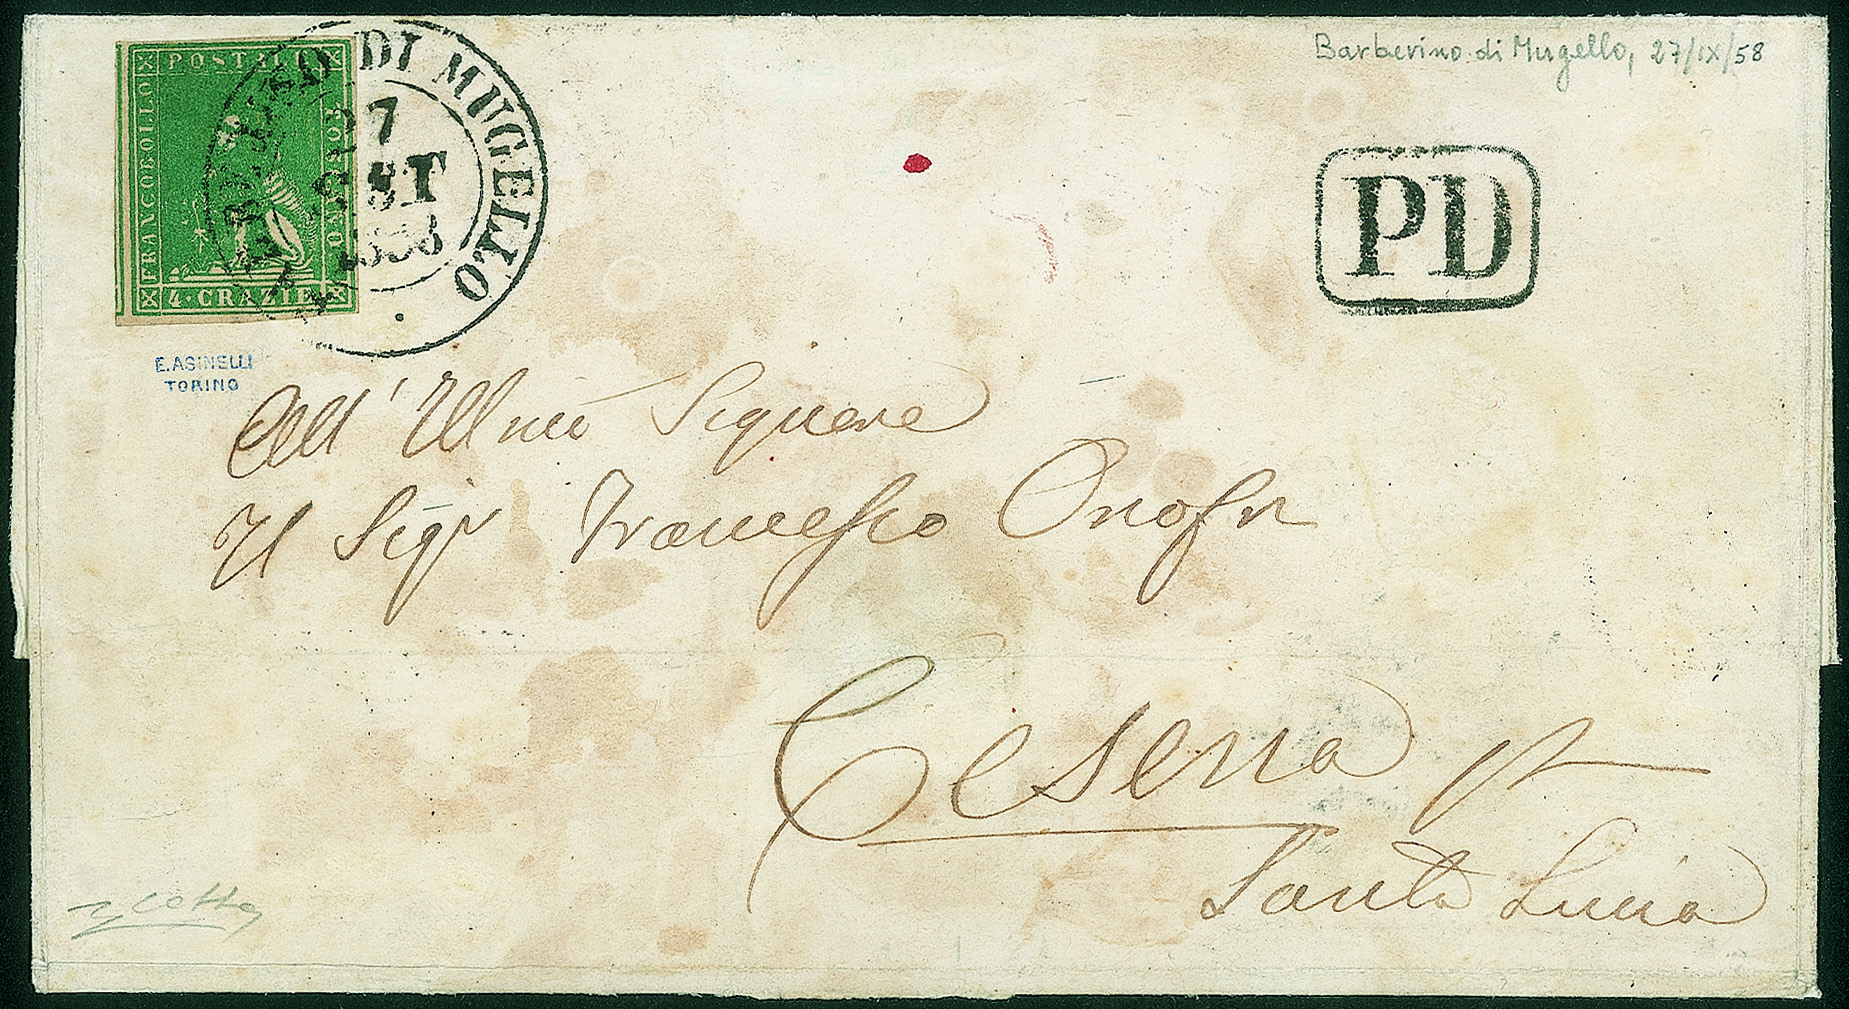 Barberino di Mugello, 27/IX/58
BARBERINO DI MUGELLO
27
SET
1858
FRANCOBOLLO
POSTALE
TOSCANO
4·CRAZIE
PD
E.ASINELLI
TORINO
All' Illmo Signore
Il Sigr Francesco Onofri
Cesena pr
Santa Lucia